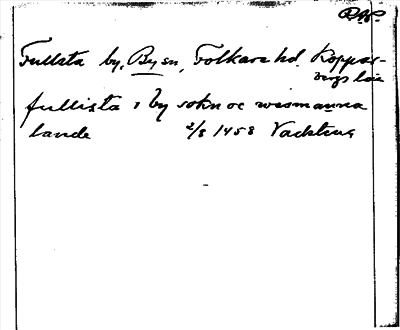 Fullsta by, By sn, Folkare hd. Koppar-
bergs län
fullista i by sokn oc wesmanna
lande 2/8 1458